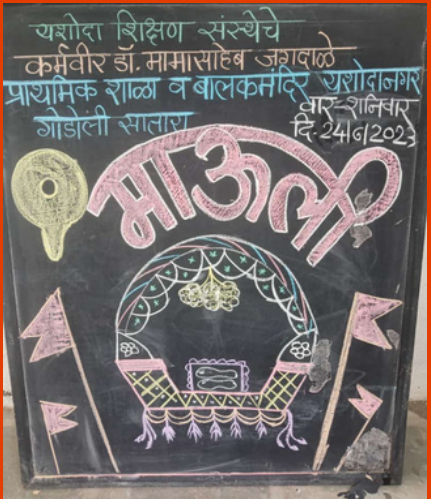 यशोदा शिक्षण संस्थेचे
कर्मवीर डॉ. मामासाहेब जगदाळे
प्राथमिक शाळा व बालकमंदिर यशोदानगर
गोडोली सातारा
वार-शनिवार
दि. 24।6।2023
माऊली